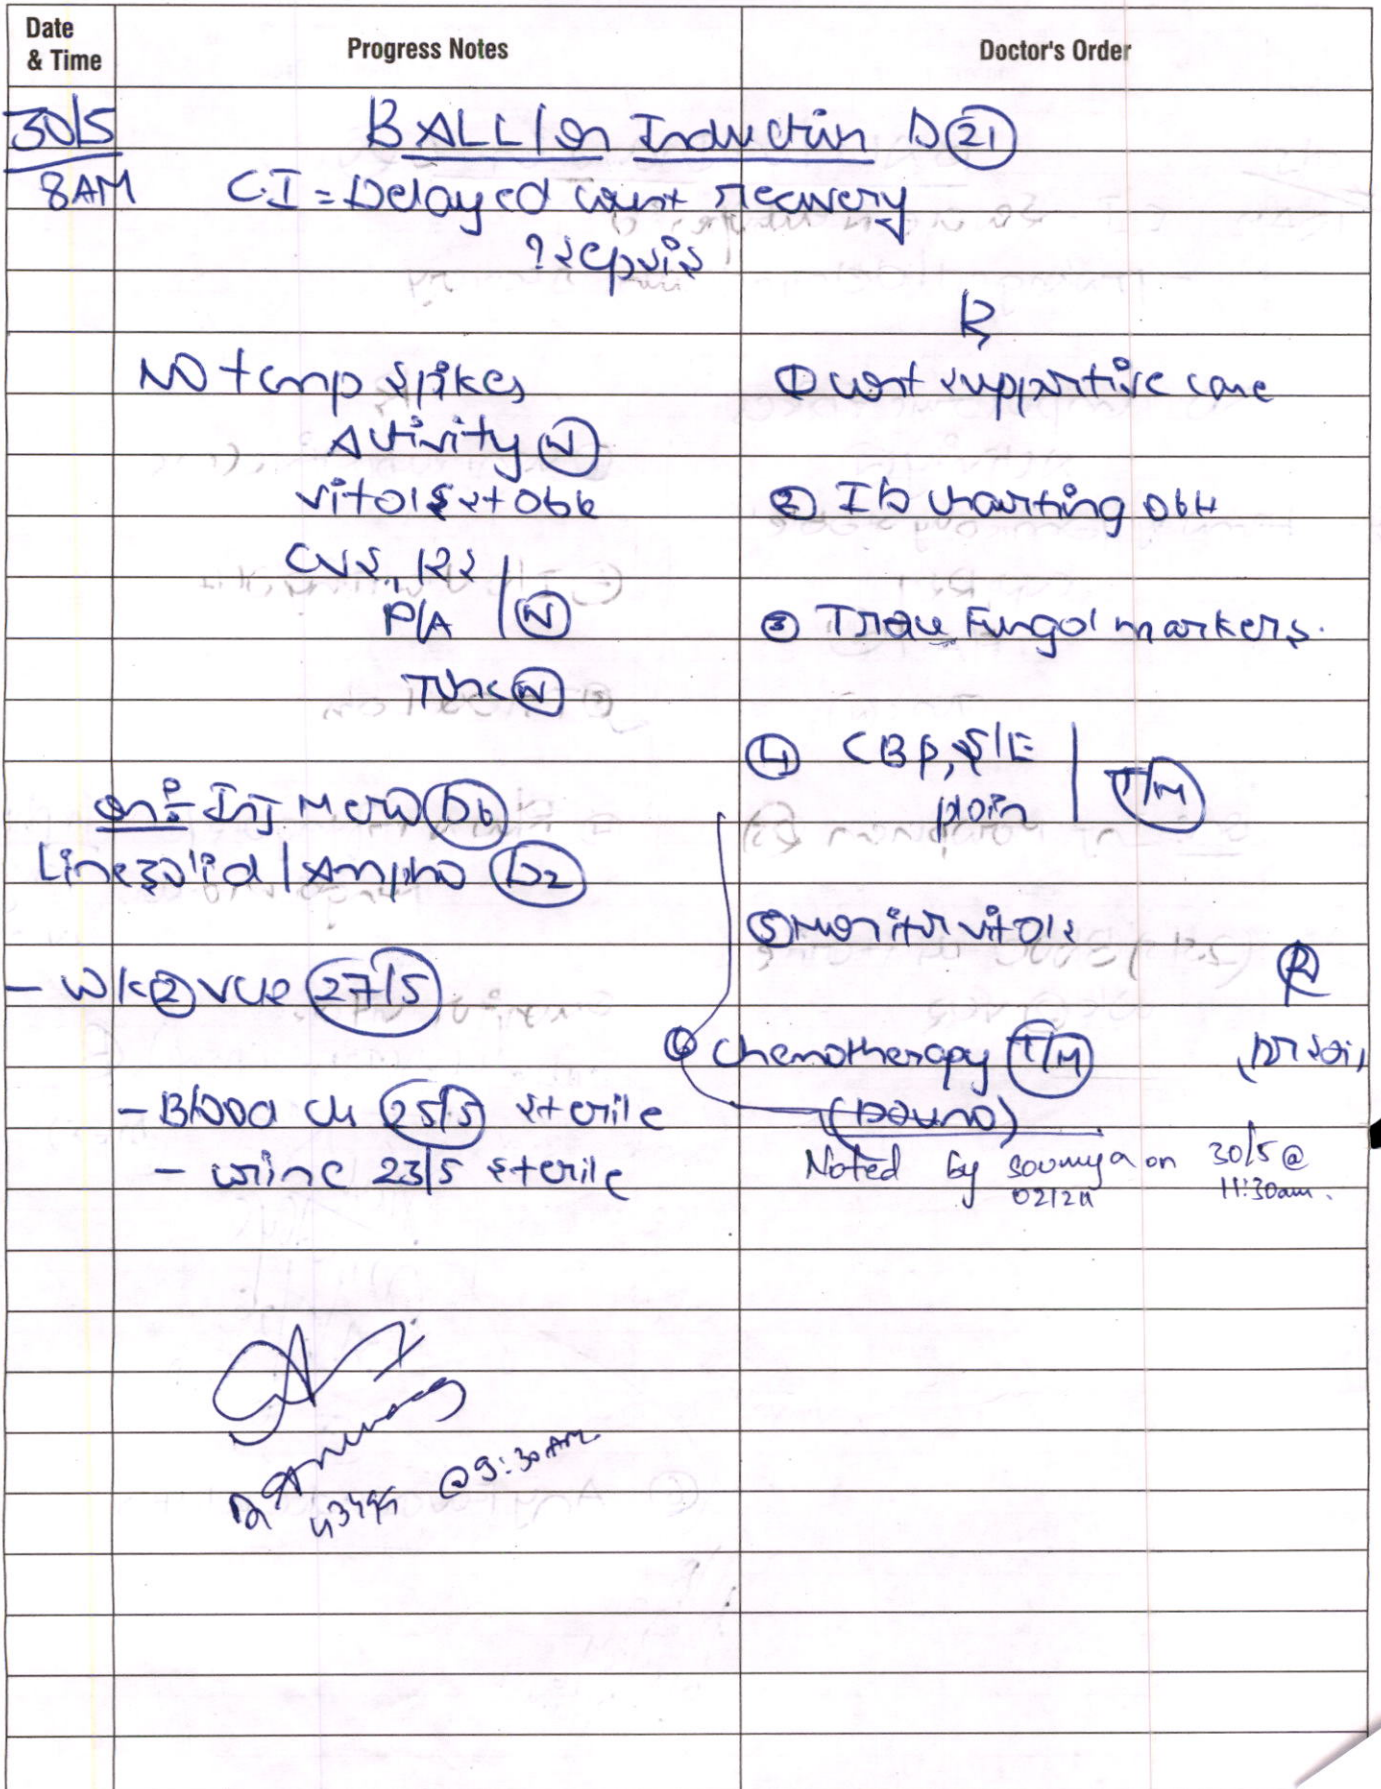 Date & Time
Progress Notes
Doctor's Order
30/5
B ALL / on Induction D 21
8AM
C.I = Delayed count recovery
? sepsis
No temp spikes
Activity N
vitals stable
CVS, RS
P/A | N
CNS N
on:- Inj Mero D6
Linezolid / Ampho D2
- WK 2 VCR 27/5
- Blood c/s 25/5 sterile
- urine 23/5 sterile
@ 9:30 AM
R
① cont supportive care
② I/O charting
③ Trace Fungal markers.
④ CBP, S/E | T/M
⑤ Monitor vitals
⑥ chemotherapy T/M
(Dauno)
Noted by Soumya on 30/5 @
11:30am.